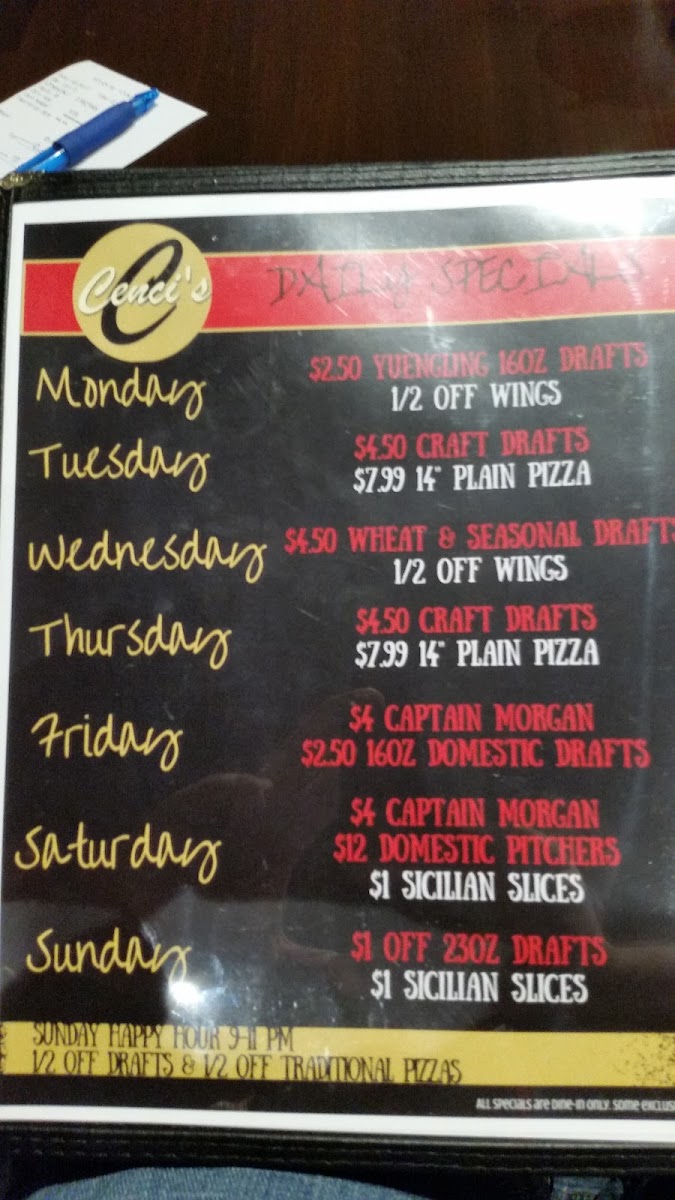 Cenci's
DAILY SPECIALS
Monday
$2.50 YUENGLING 16OZ DRAFTS
1/2 OFF WINGS
Tuesday
$4.50 CRAFT DRAFTS
$7.99 14" PLAIN PIZZA
Wednesday
$4.50 WHEAT & SEASONAL DRAFTS
1/2 OFF WINGS
Thursday
$4.50 CRAFT DRAFTS
$7.99 14" PLAIN PIZZA
Friday
$4 CAPTAIN MORGAN
$2.50 16OZ DOMESTIC DRAFTS
Saturday
$4 CAPTAIN MORGAN
$12 DOMESTIC PITCHERS
$1 SICILIAN SLICES
Sunday
$1 OFF 23OZ DRAFTS
$1 SICILIAN SLICES
SUNDAY HAPPY HOUR 9-11 PM
1/2 OFF DRAFTS & 1/2 OFF TRADITIONAL PIZZAS
ALL SPECIALS are DINE-IN ONLY. SOME EXCLUS